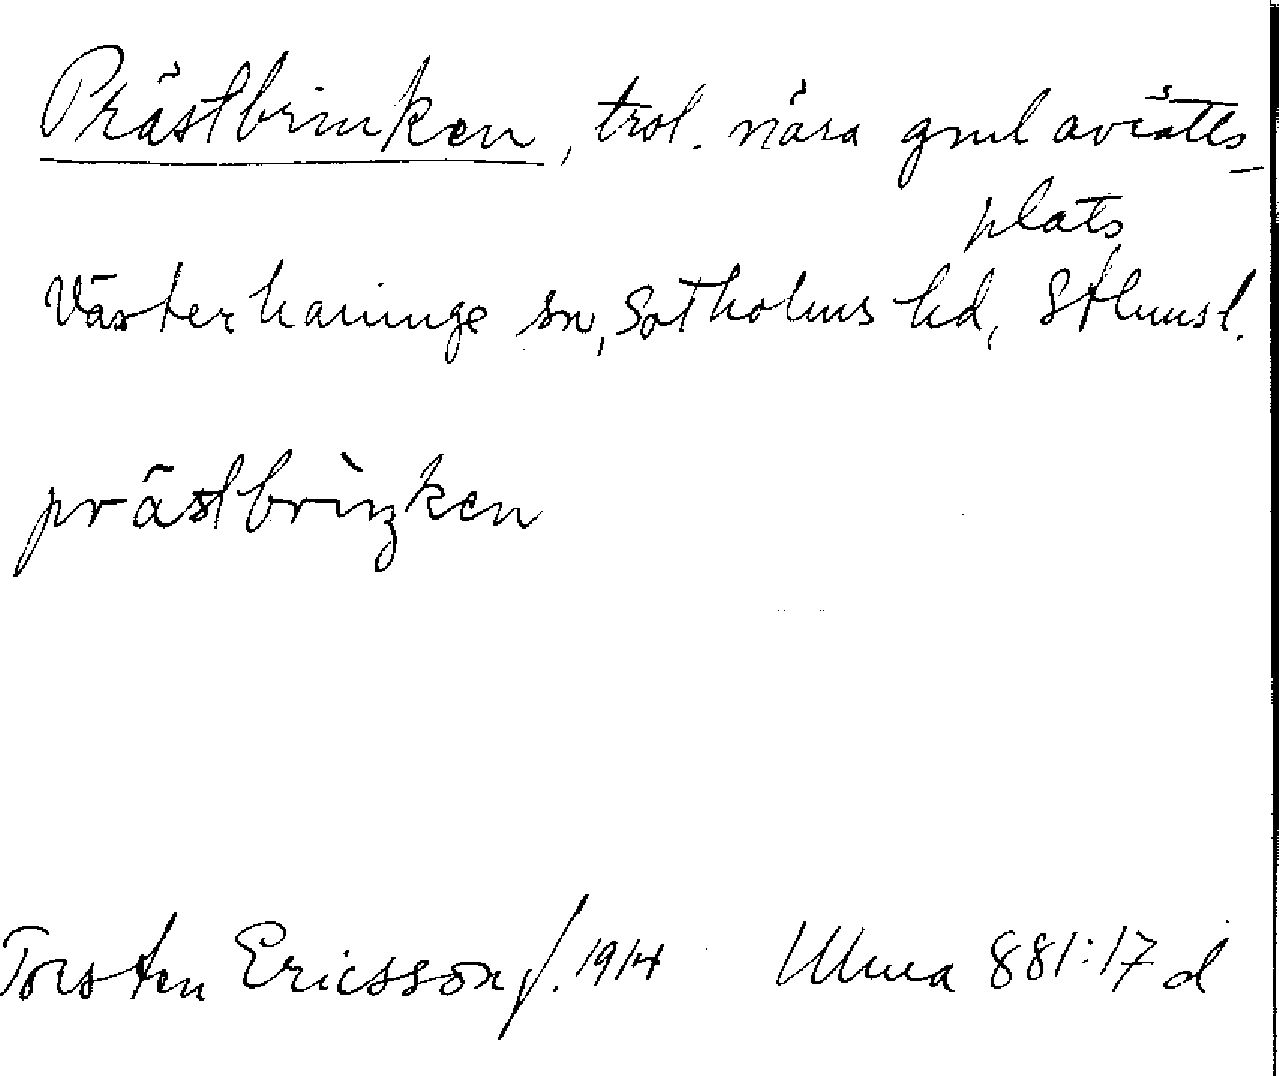 Prästbrinken, trol. nära gml avrätts-
plats
Västerhaninge sn, Sotholms hd, Sthmsl.
prästbrìŋken
Torsten Ericsson f. 1914 Ulma 881:17 d